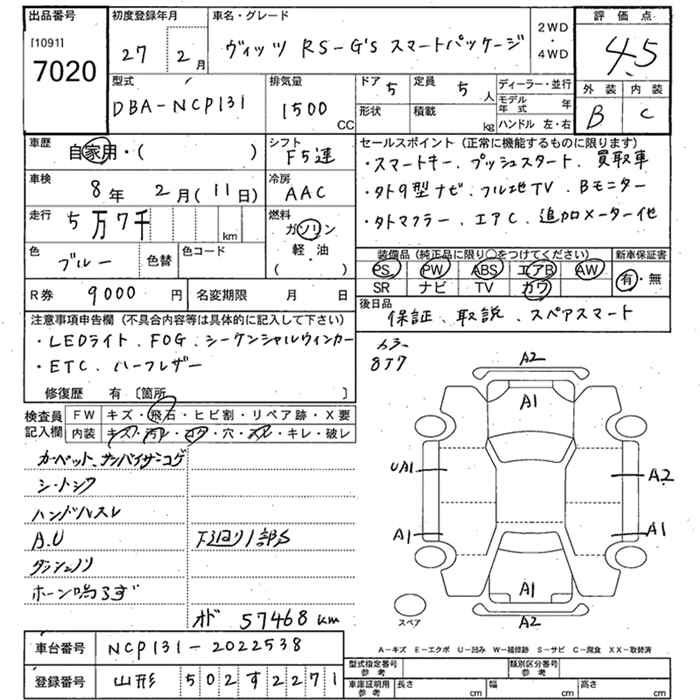 出品番号
[1091]
7020
初度登録年月
27年2月
車名・グレード
ヴィッツ RS-G's スマートパッケージ
2WD・4WD
評価点
4.5
外装 内装
B C
型式
DBA-NCP131
排気量
1500 CC
ドア 5
定員 5人
形状
積載 kg
ディーラー・並行
モデル年式 年
ハンドル 左・右
車歴
自家用・( )
シフト
F5速
車検
8年 2月(11日)
冷房
AAC
走行
5万7千 km
燃料
ガソリン
軽・油
( )
色
ブルー
色替
色コード
R券 9000円
名変期限 月 日
セールスポイント (正常に機能するものに限ります)
・スマートキー、プッシュスタート、買取車
・タト9型ナビ、フルセTV、Bモニター
・タトマフラー、エアC、追加メーター他
装備品 (純正品に限り○をつけてください)
新車保証書
PS PW ABS エアB AW
SR ナビ TV カワ
有・無
後日品
保証、取説、スペアスマート
注意事項申告欄 (不具合内容等は具体的に記入して下さい)
・LEDライト、FOG、シーケンシャルウィンカー
・ETC、ハーフレザー
修復歴 有 〔箇所 〕
検査員記入欄
FW キズ・飛石・ヒビ割・リペア跡・X要
内装 キズ・汚レ・コゲ・穴・スレ・キレ・破レ
カーペット、サンバイザーコゲ
シートシワ
ハンドルスレ
A.U
下廻り1部S
ダッシュノリ
ホーン鳴らず
オド 57468km
877
A2
A1
UA1
A2
A1
A1
A1
A2
スペア
A-キズ E-エクボ U-凹み W-補修跡 S-サビ C-腐食 XX-取替済
車台番号 NCP131-2022538
登録番号 山形 502す2271
型式指定番号 参考
類別区分番号 参考
車庫証明用 参考
長さ cm
幅 cm
高さ cm